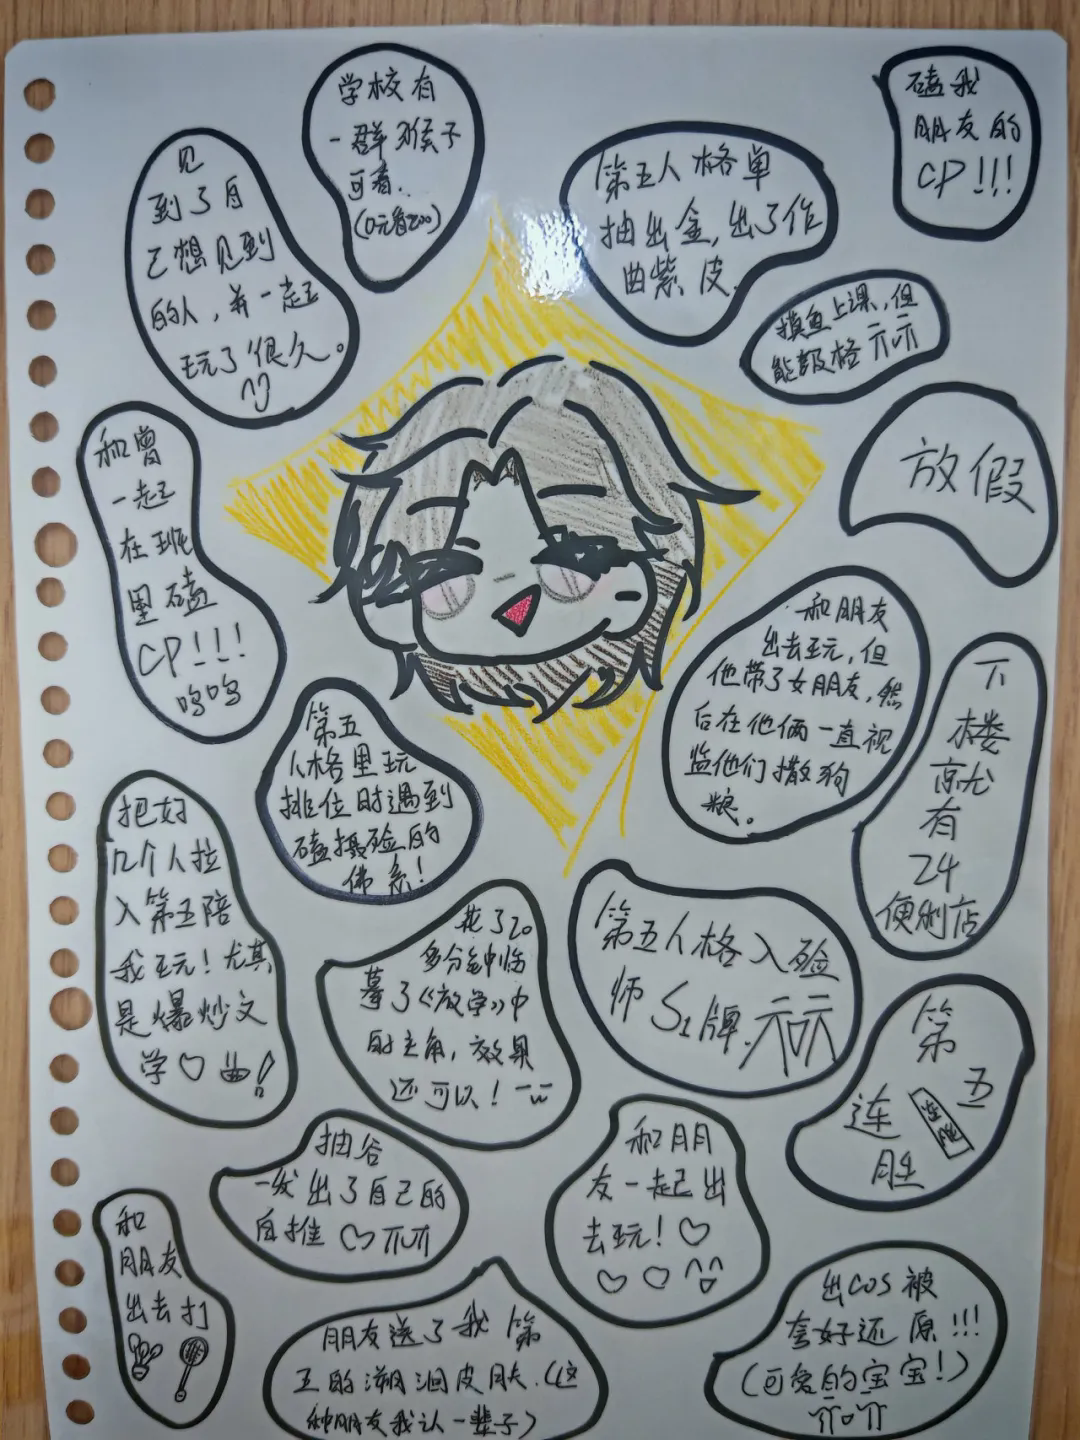 学校有
一群猴子
可看.
(0元看zoo)
磕我
朋友的
CP!!!
见
到了自
己想见到
的人,并一起
玩了很久。
第五人格单
抽出金,出了作
曲紫皮.
摸鱼上课,但
能及格
放假
和曾
一起
在班
里磕
CP!!!
呜呜
和朋友
出去玩,但
他带了女朋友,然
后在他俩一直视
监他们撒狗
粮。
下
楼
就
有
24
便利店
第五
人格里玩
排位时遇到
磕摄殓的
佛系!
把好
几个人拉
入第五陪
我玩!尤其
是爆炒文
学♡
花了20
多分钟临
摹了《放学》中
的主角,效果
还可以!
第五人格入殓
师S1牌.
第
五
连
胜
抽谷
一发出了自己的
自推♡
和朋
友一起出
去玩!♡
♡♡
和
朋友
出去打
朋友送了我第
五的溯洄皮肤.(这
种朋友我认一辈子)
出cos被
夸好还原!!!
(可爱的宝宝!)